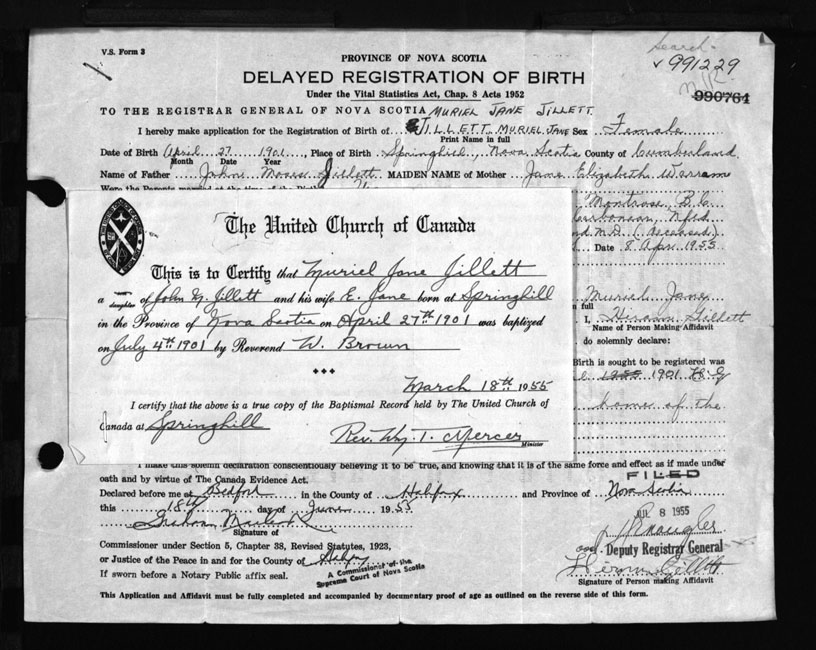 V.S. Form 3
Search
✓ 991229
990764
PROVINCE OF NOVA SCOTIA
DELAYED REGISTRATION OF BIRTH
Under the Vital Statistics Act, Chap. 8 Acts 1952
TO THE REGISTRAR GENERAL OF NOVA SCOTIA MURIEL JANE JILLETT.
I hereby make application for the Registration of Birth of JILLETT MURIEL JANE Sex Female
Print Name in full
Date of Birth April 27 1901, Place of Birth Springhill, Nova Scotia County of Cumberland
Month Date Year
Name of Father John Moses Jillett MAIDEN NAME of Mother Jane Elizabeth
Were the Parents married at the time of the Birth
Montrose B.C.
Carbonear, Nfld
M.D. (deceased)
Date 8 Apr 1955
The United Church of Canada
This is to Certify that Muriel Jane Jillett
a daughter of John M. Jillett and his wife E. Jane born at Springhill
in the Province of Nova Scotia on April 27th 1901 was baptized
on July 4th 1901 by Reverend W. Brown
March 18th 1955
I certify that the above is a true copy of the Baptismal Record held by The United Church of
Canada at Springhill
Rev. Wm. T. Mercer
Minister
Muriel Jane
in full
I, Hiram Gillett
Name of Person Making Affidavit
do solemnly declare:
Birth is sought to be registered was
1955 1901 H G
home of the
I make this solemn declaration conscientiously believing it to be true, and knowing that it is of the same force and effect as if made under
oath and by virtue of The Canada Evidence Act.
FILED
Declared before me at Bedford in the County of Halifax and Province of Nova Scotia
this 18th day of June 1955
JUL 8 1955
Signature of
Deputy Registrar General
Commissioner under Section 5, Chapter 38, Revised Statutes, 1923,
or Justice of the Peace in and for the County of Halifax
A Commissioner of the
Supreme Court of Nova Scotia
Hiram Gillett
If sworn before a Notary Public affix seal.
Signature of Person making Affidavit
This Application and Affidavit must be fully completed and accompanied by documentary proof of age as outlined on the reverse side of this form.